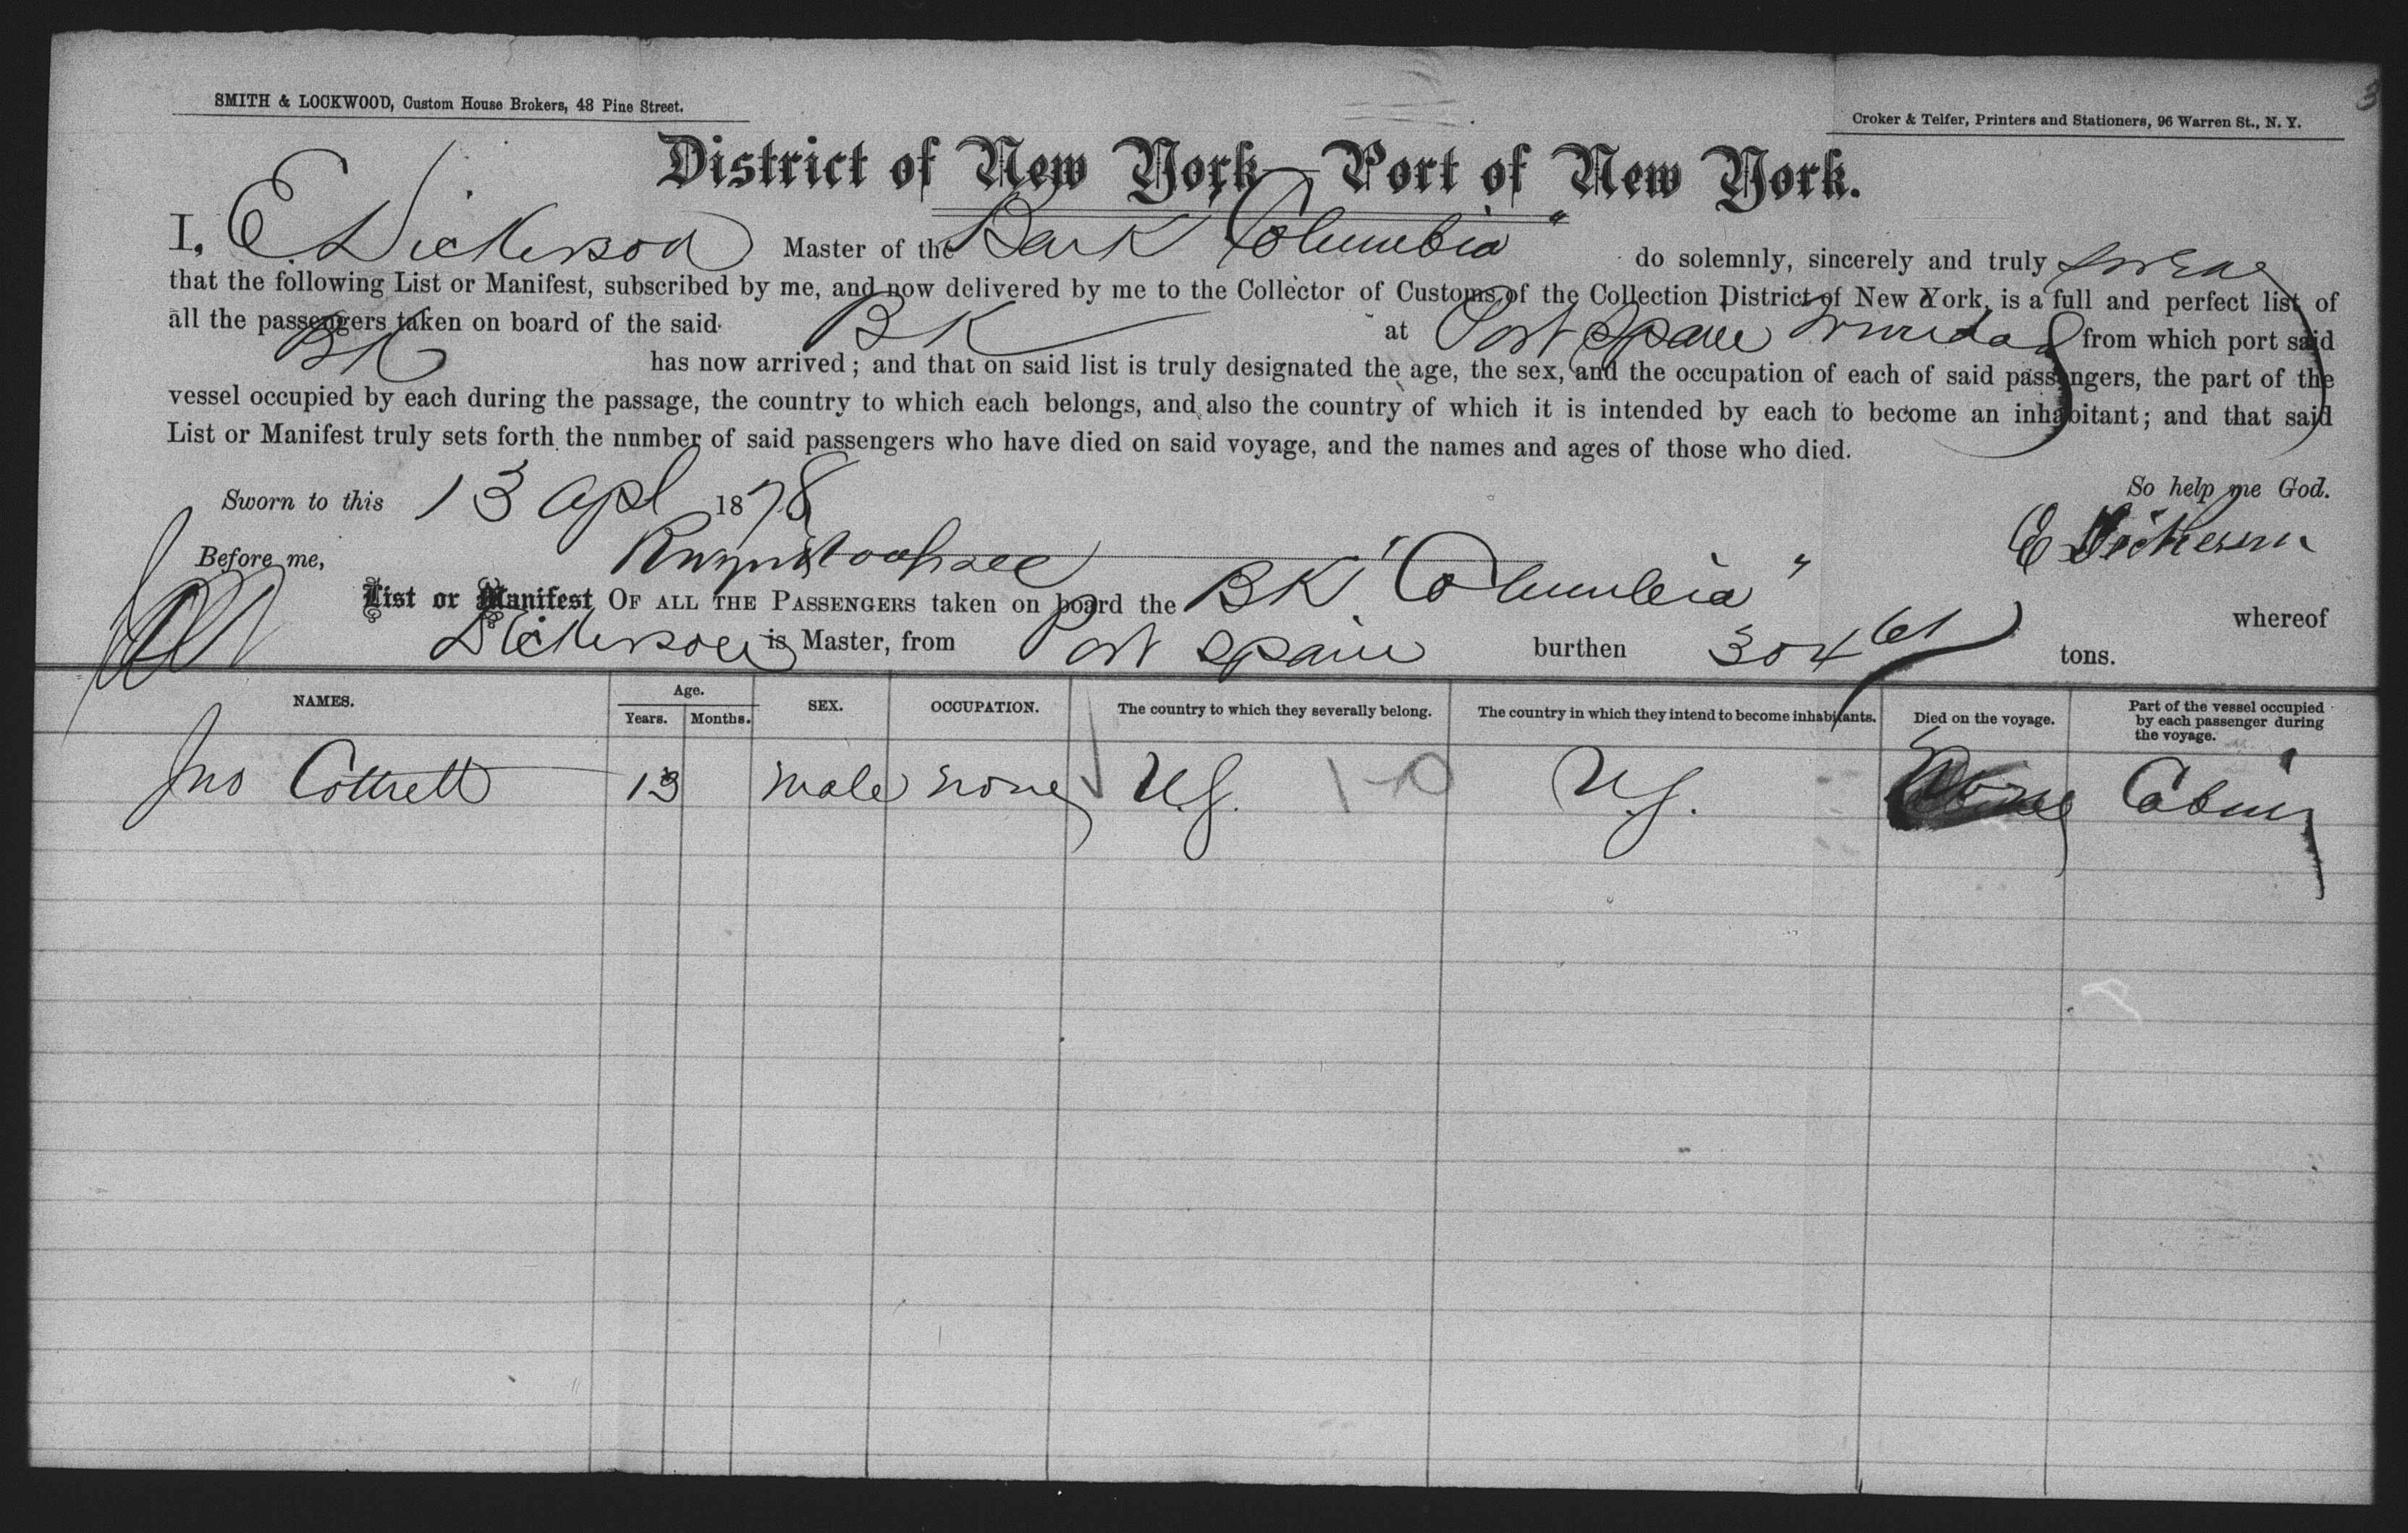 SMITH & LOCKWOOD, Custom House Brokers, 48 Pine Street.
Croker & Telfer, Printers and Stationers, 96 Warren St., N. Y.
District of New York—Port of New York.
I, E Dickerson Master of the Bark "Columbia" do solemnly, sincerely and truly swear
that the following List or Manifest, subscribed by me, and now delivered by me to the Collector of Customs of the Collection District of New York, is a full and perfect list of
all the passengers taken on board of the said BK at Port Spain Trinidad from which port said
BK has now arrived; and that on said list is truly designated the age, the sex, and the occupation of each of said passengers, the part of the
vessel occupied by each during the passage, the country to which each belongs, and also the country of which it is intended by each to become an inhabitant; and that said
List or Manifest truly sets forth the number of said passengers who have died on said voyage, and the names and ages of those who died.
Sworn to this 13 Apl 1878 So help me God.
Before me, E Dickerson
List or Manifest OF ALL THE PASSENGERS taken on board the BK "Columbia" whereof
Dickerson is Master, from Port Spain burthen 304 tons.
NAMES. Age. Years. Months. SEX. OCCUPATION. The country to which they severally belong. The country in which they intend to become inhabitants. Died on the voyage. Part of the vessel occupied by each passenger during the voyage.
Jno Cottrell 13 male none U.S. U.S. None Cabin